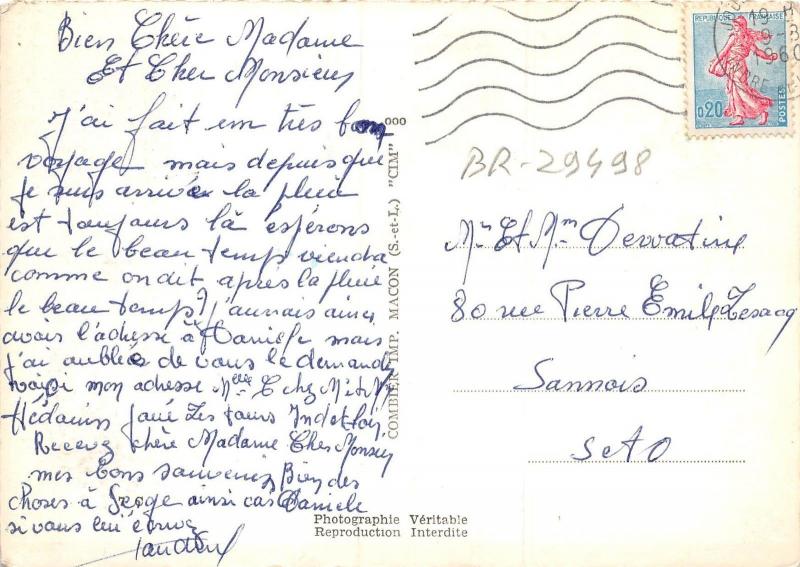 Bien Chère Madame
Et Cher Monsieur
J'ai fait em très bon
voyage mais depuis que
je suis arrivée la pluie
est toujours là espérons
que le beau temps viendra
comme on dit après la pluie
le beau temps, j'aurais aimé
avoir l'adresse à Daniele mais
j'ai oubliée de vous le demander
voisi mon adresse Melle C chez M et Mm
Hédouin Joué Les Tours Ind et Loir
Recevez chère Madame Cher Monsieur
mes bons souvenirs Bien des
choses à Serge ainsi cas Daniele
si vous lui écrivez
COMBIER IMP. MACON (S.-et-L.) "CIM"
REPUBLIQUE FRANÇAISE
0,20
POSTES
BR-29498
Mr Et Mm Dervatine
80 rue Pierre Emile
Sannois
S et O
Photographie Véritable
Reproduction Interdite